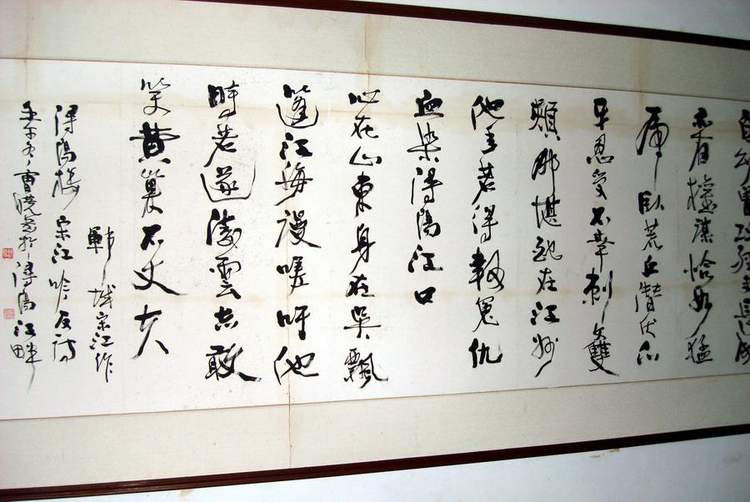 曾攻經史長成
亦有權謀恰如猛
虎臥荒丘潛伏爪
牙忍受不幸刺雙
頰那堪配在江州
他年若得報冤仇
血染潯陽江口
心在山東身在吳飄
蓬江海謾嗟吁他
時若遂凌雲志敢
笑黃巢不丈夫
鄆城宋江作
潯陽樓宋江吟反詩
壬午冬曹於潯陽江畔